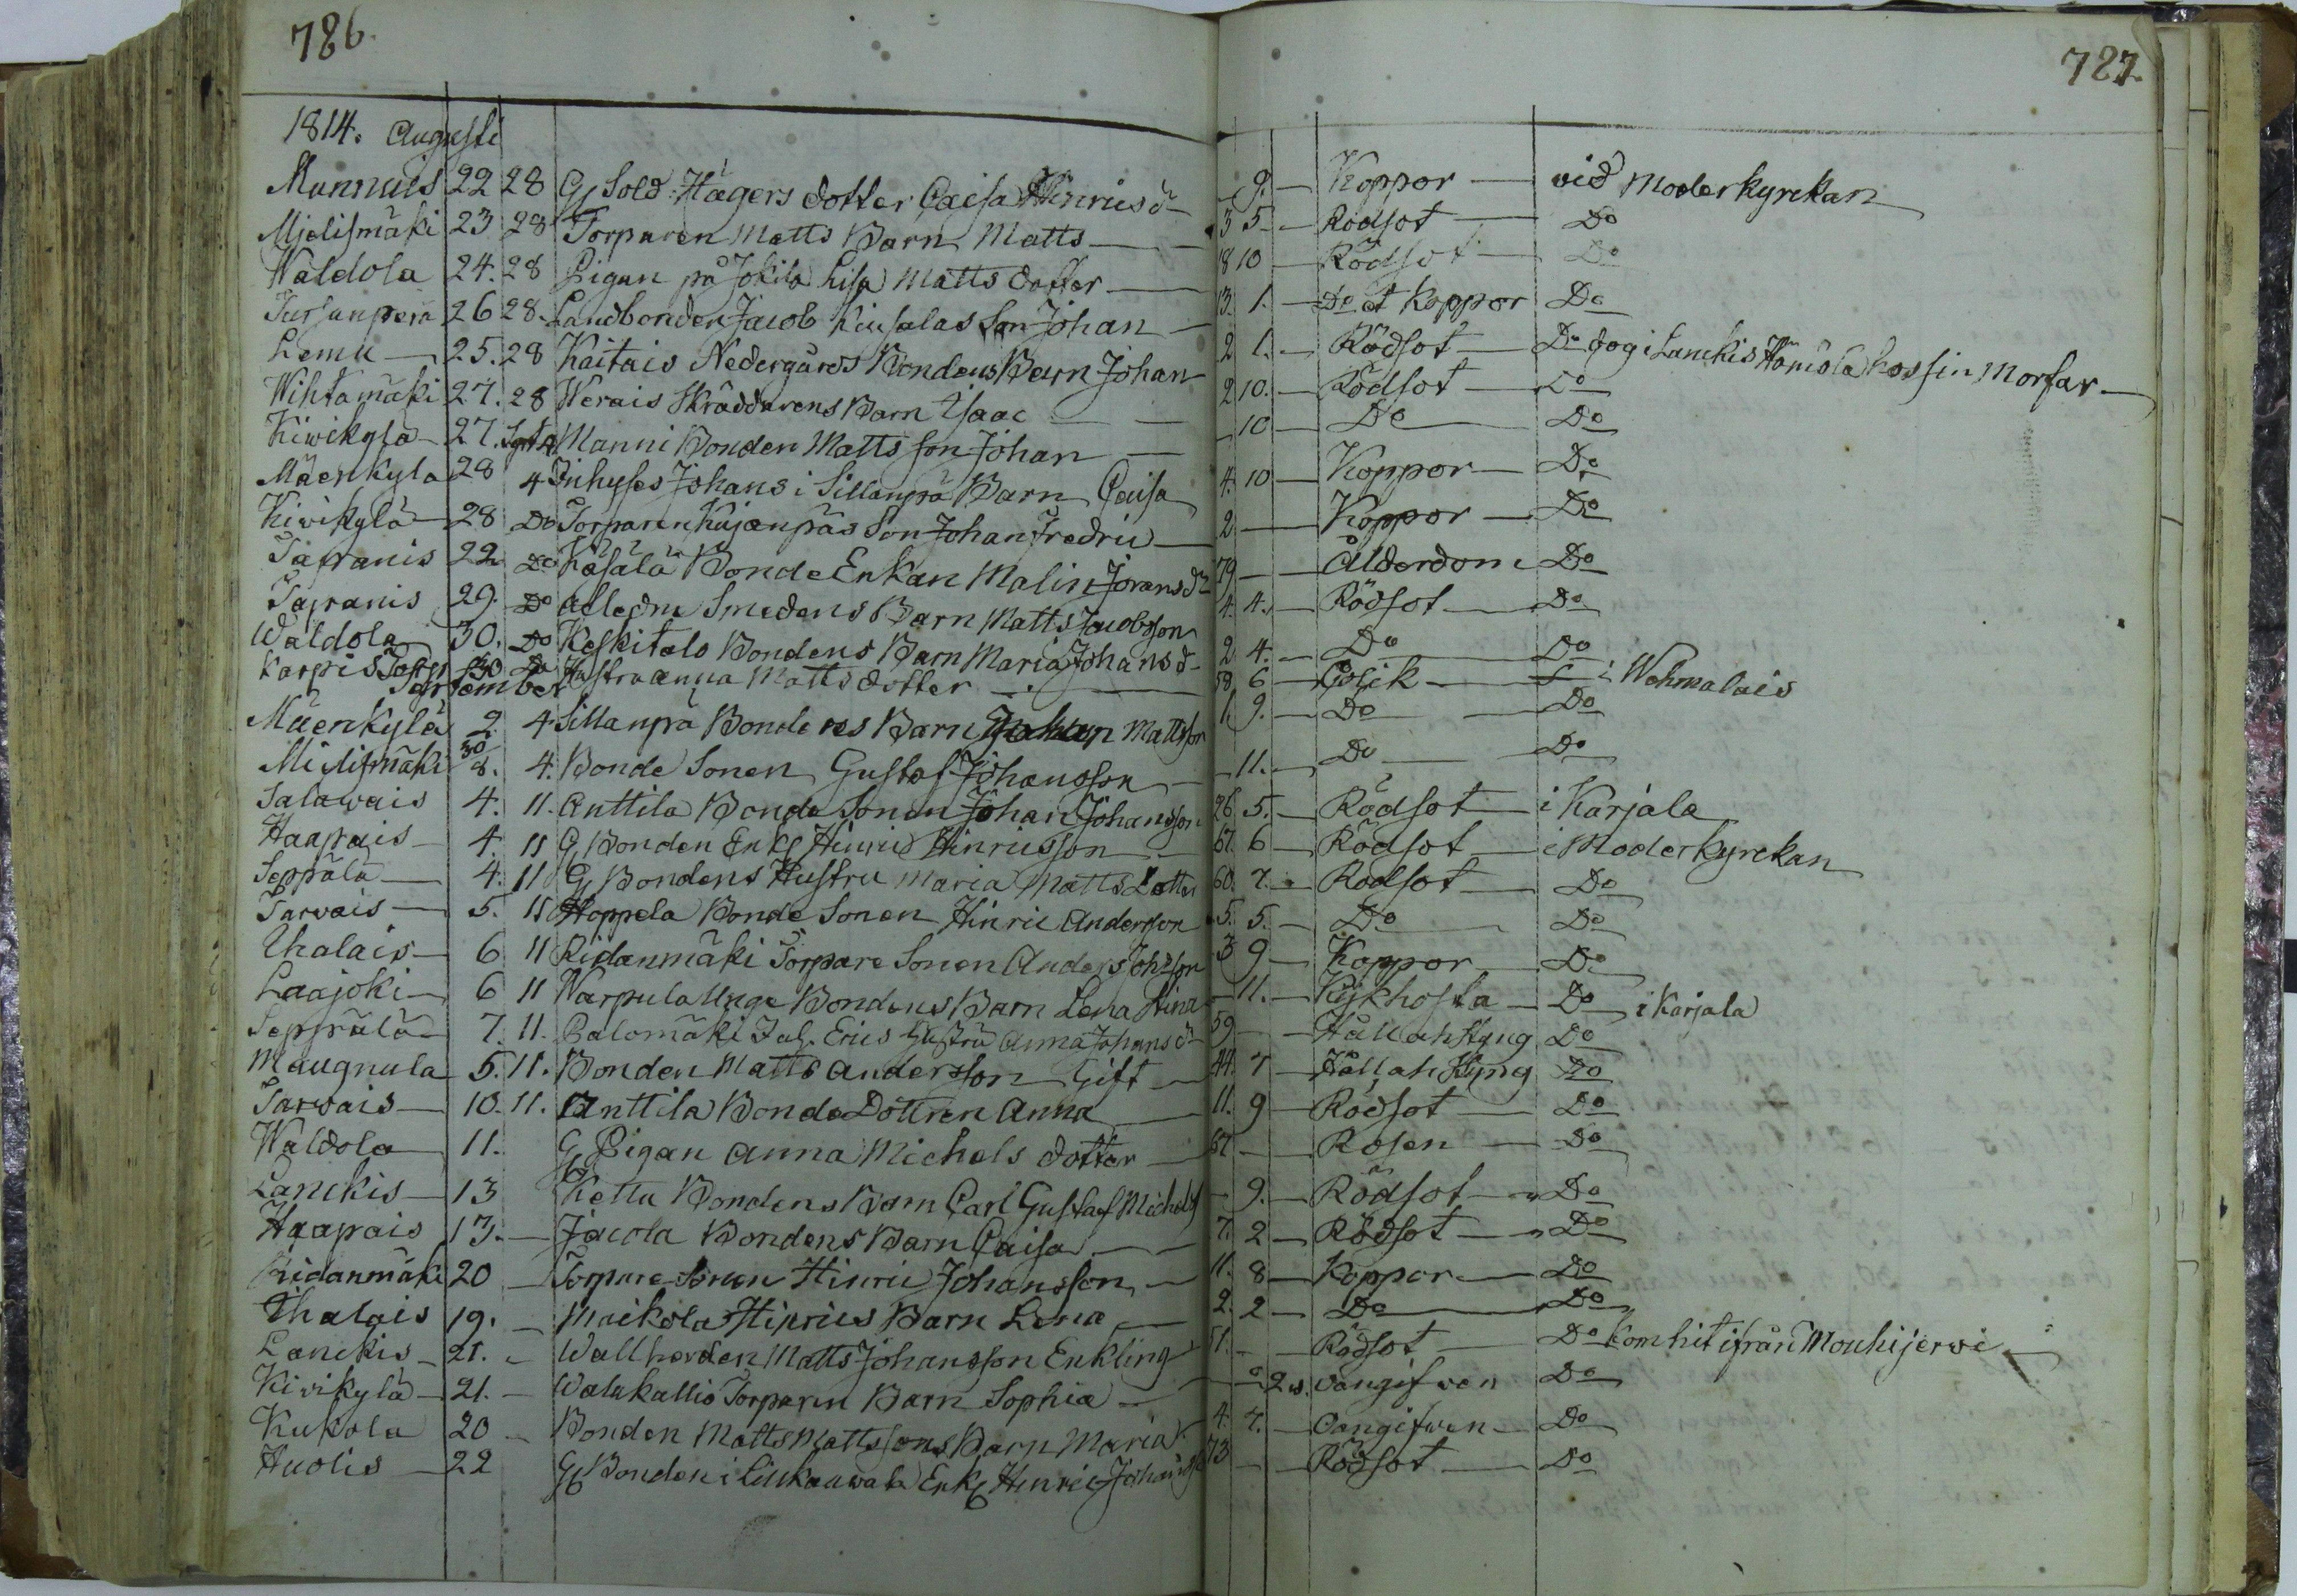 786.
787.
1814. Augusti
Munnuis 22 28 G. Sold: Hägers dotter Caisa Hinricsd - 9. - Koppor - vid Moderkyrckan
Mjelismäki 23 28 Torparen Matts Barn Matts - 3 5 - Rödsot - Do
Waldola 24. 28 Pigan på Jokila Lisa Matts dotter - 18 10 - Rödsot - Do
26 28. Landbonden Jacob Kiusalas Son Johan - 13. 1. - Do et Koppor Do
Lemu - 25. 28 Kaitais Nedergårds Bondens Barn Johan 2 1. - Rödsot - Do dog i Lanckis hos sin Morfar -
Wihtamäki 27. 28 Werais Skräddarens Barn Isaac - 2 10. - Rödsot - Do
Kiwikylä - 27. Manni Bonden Matts son Johan - 10 - Do Do
Mäenkylä 28 4 Inhyses Johans i Sillanpä Barn Caisa 4. 10 - Koppor - Do
Kiwikylä - 28 Do Torparen Kujanpäs Son Johan Fredric - 2 - Koppor - Do
22 Do Käsälä Bonde Enkan Malin Joransdr 79 - Ålderdom Do
29. Do Smedens Barn Matts Jacobsson 4. 4. - Rödsot - Do
Waldola 30. Do Keskitalo Bondens Barn Maria Johansd - 2 4. - Do Do
Karpis 30 Do Hustru Anna Matts dotter - 58 6 - Colik - i Wehmalais
September
Mäenkylä 2 4 Sillanpä Bondens Barn Mattsson 1. 9. - Do - Do
Mielismäki 30 8. 4. Bonde Sonen Gustaf Johansson - 11. - Do - Do
Salawais 4. 11. Anttila Bonde Sonen Johan Johansson 26 5. - Rödsot - i Karjala
Haapais - 4 11 G. Bonden Enkl Hinric Hinricsson - 67. 6 - Rödsot - i Moderkyrckan
Seppälä - 4. 11 G. Bondens Hustru Maria Matts Dotter 60. 7. - Rödsot - Do
Tarvais - 5. 11 Hoppela Bonde Sonen Hinric Andersson 5. 5. - Do - Do
Thalais - 6 11 Ridanmäki Torpare Sonen Anders Johsson 3 9 - Koppor - Do
Laajoki - 6 11 Warpula Unge Bondens Barn Lena Stina - 11. - Kikhosta - Do i Karjala
Seppälä 7. 11. Palomäki Erics Hustru Anna Johansdr 59 - Håll och Styng Do
Maugnula 5. 11. Bonden Matts Andersson Gift - 44. 7 - Håll och Styng Do
Tarvais - 10. 11. Anttila Bonde Dottren Anna - 11. 9 - Rödsot - Do
Waldola 11. G. Pigan Anna Michels dotter - 67 - Rosen - Do
Lanckis - 13 Kettu Bondens Barn Carl Gustaf Michels - 9. - Rödsot - Do
Haapais 17. - Jacola Bondens Barn Caisa - 7. 2 - Rödsot - Do
Ridanmäki 20 - Torpare Sonen Hinric Johansson - 11. 8 - Koppor - Do
Thalais 19. - Maikola Hinrics Barn Lena - 2. 2 - Do - Do
Lanckis - 21. - Wallherden Matts Johansson Enkling 51. - Rödsot - Do Kom hit ifrån Mouhijerwi -
Kivikylä - 21. - Walakallio Torparen Barn Sophia - 2 w. oangifven Do
Kukola 20 - Bonden Matts Mattssons Barn Maria 4. 7. - Oangifwen - Do
Huolis - 22 G. Bonden i Enkl Hinric Johansson 73 - Rödsot - Do